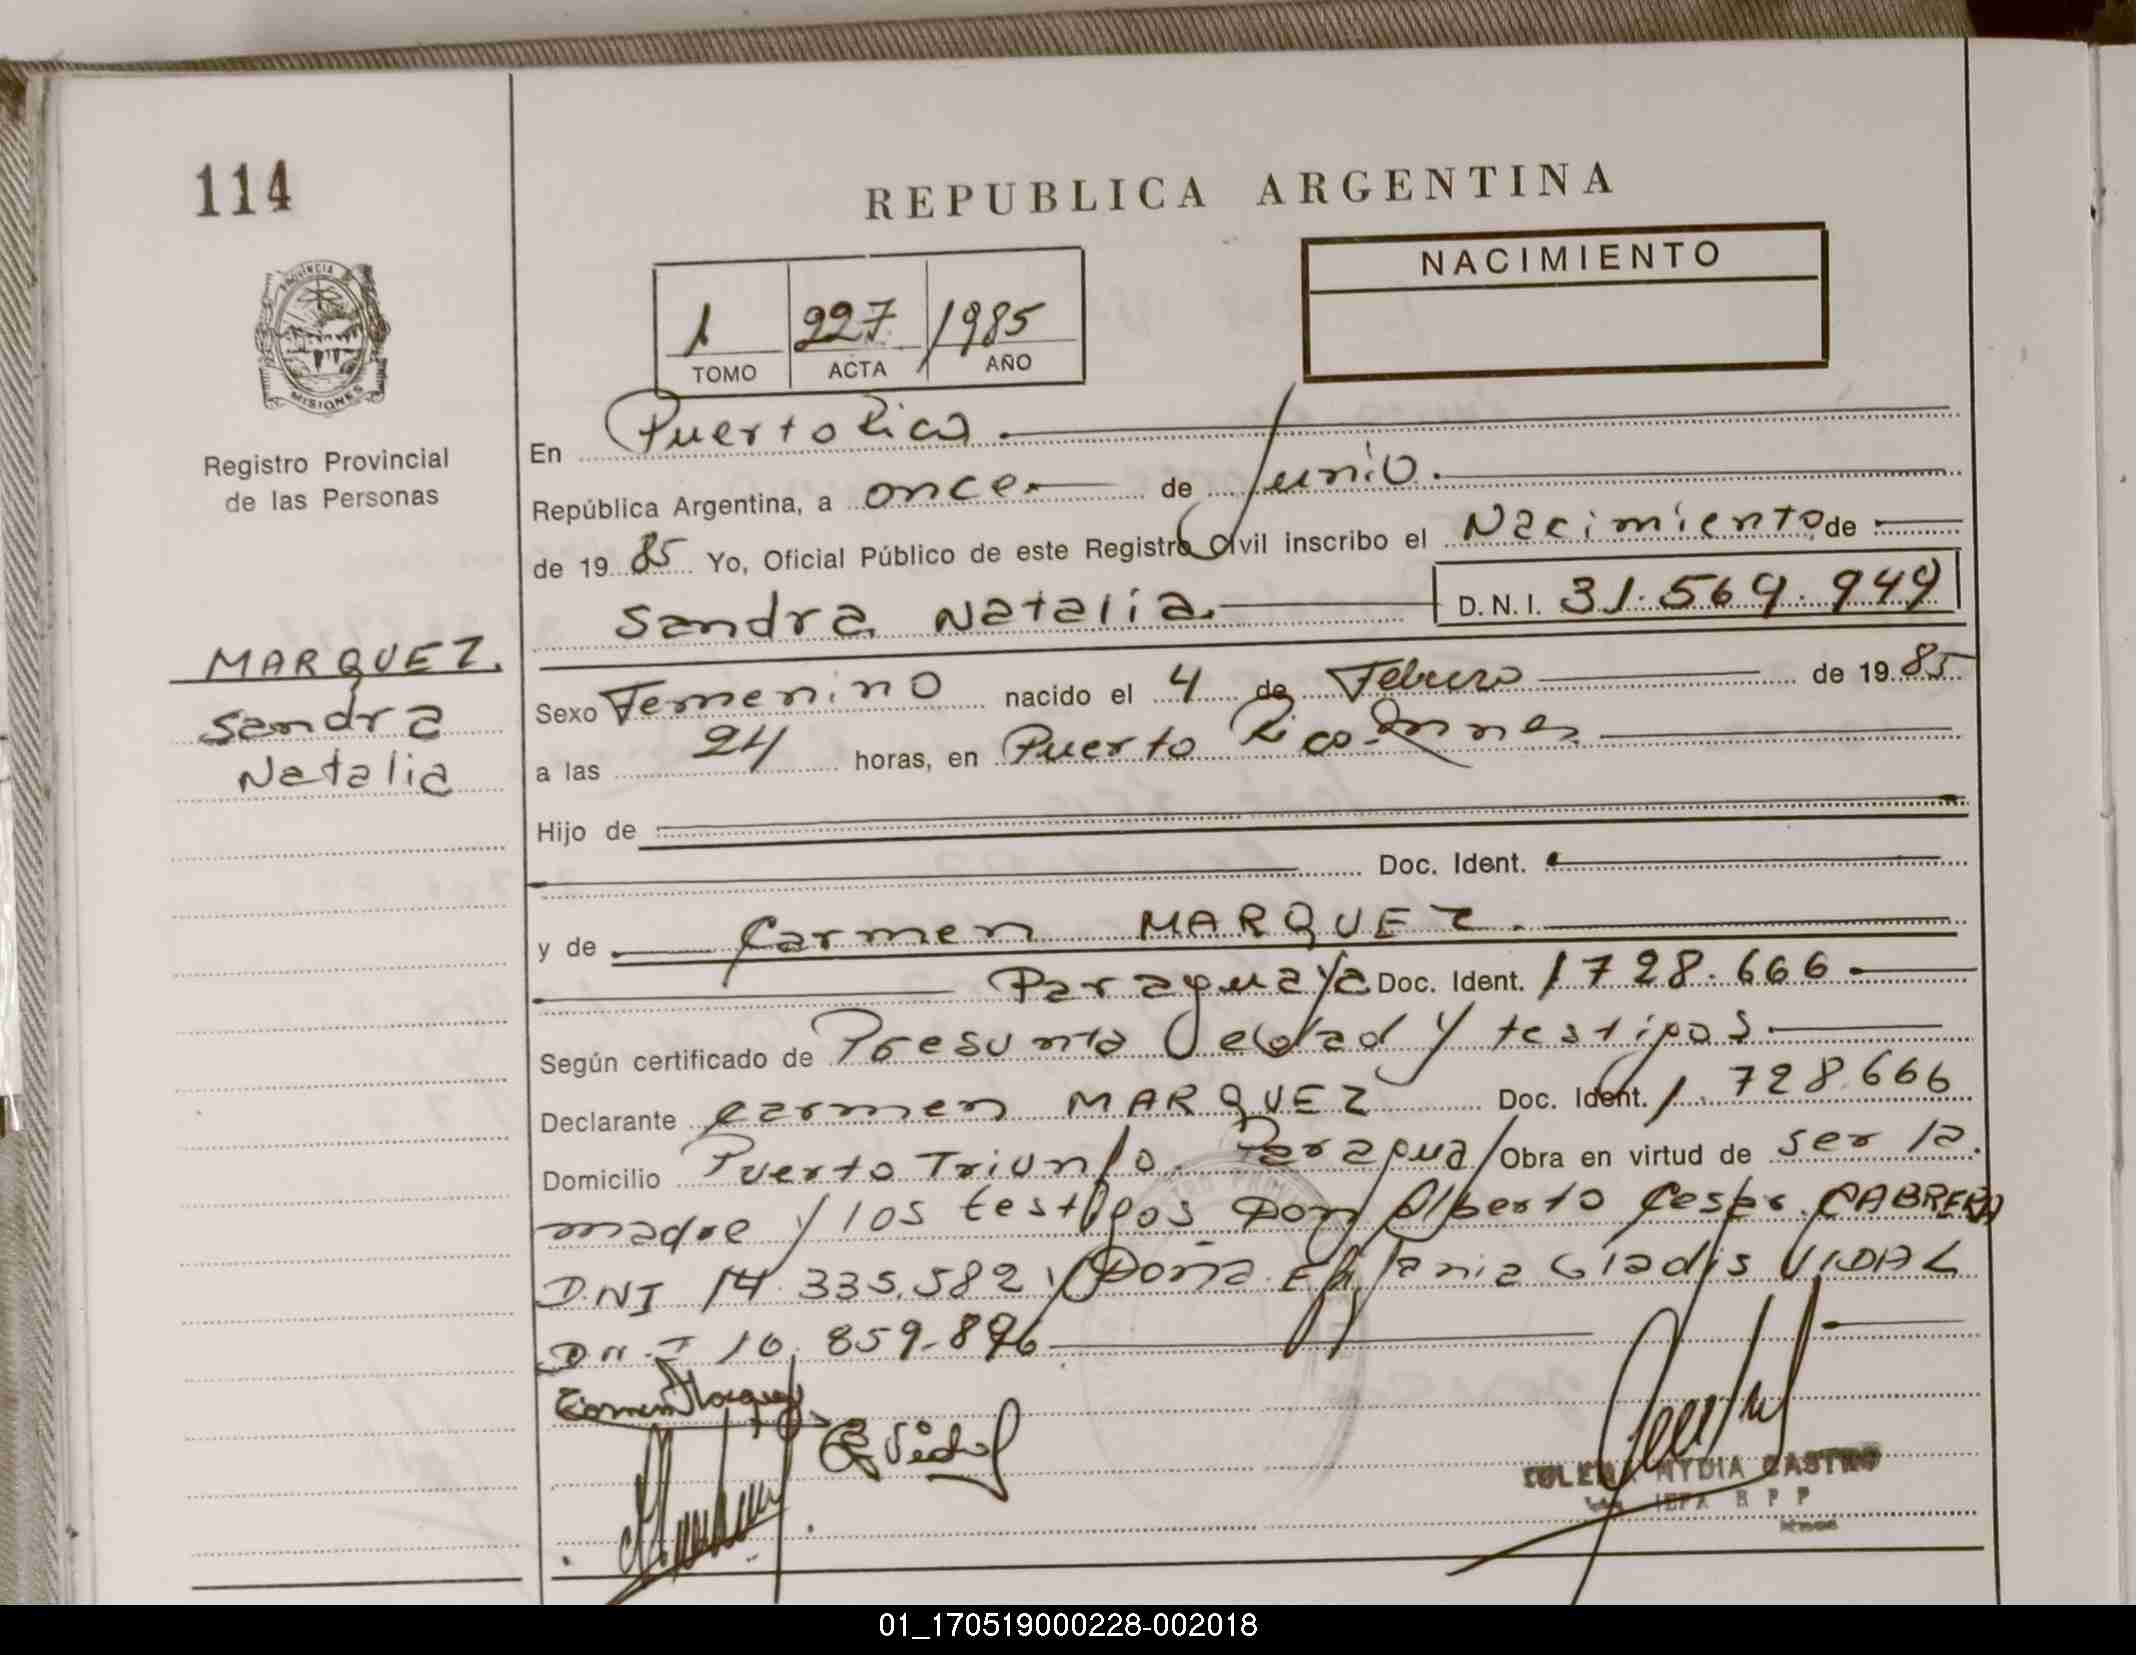 114
REPUBLICA ARGENTINA
NACIMIENTO
1 227 1985
TOMO ACTA AÑO
PROVINCIA
MISIONES
Registro Provincial
de las Personas
MARQUEZ.
Sandra
Natalia
En Puerto Rico.
República Argentina, a once. de Junio.
de 1985 Yo, Oficial Público de este Registro Civil inscribo el Nacimiento de
Sandra Natalia. D.N.I. 31.569.949
Sexo Femenino nacido el 4 de Febrero de 1985
a las 24 horas, en Puerto Rico-Mnes
Hijo de
Doc. Ident.
y de Carmen MARQUEZ.
Paraguaya Doc. Ident. 1728.666
Según certificado de Presunta edad y testigos
Declarante Carmen MARQUEZ Doc. Ident. 1.728.666
Domicilio Puerto Triunfo. Paraguay Obra en virtud de ser la
madre y los testigos Don Alberto Cesar CABRERA
DNI 14.335.582 y Doña Gladis VIDAL
DNI 10.859.896
Carmen Marquez
E Vidal
NYDIA CASTRO
JEFA R P P
01_170519000228-002018